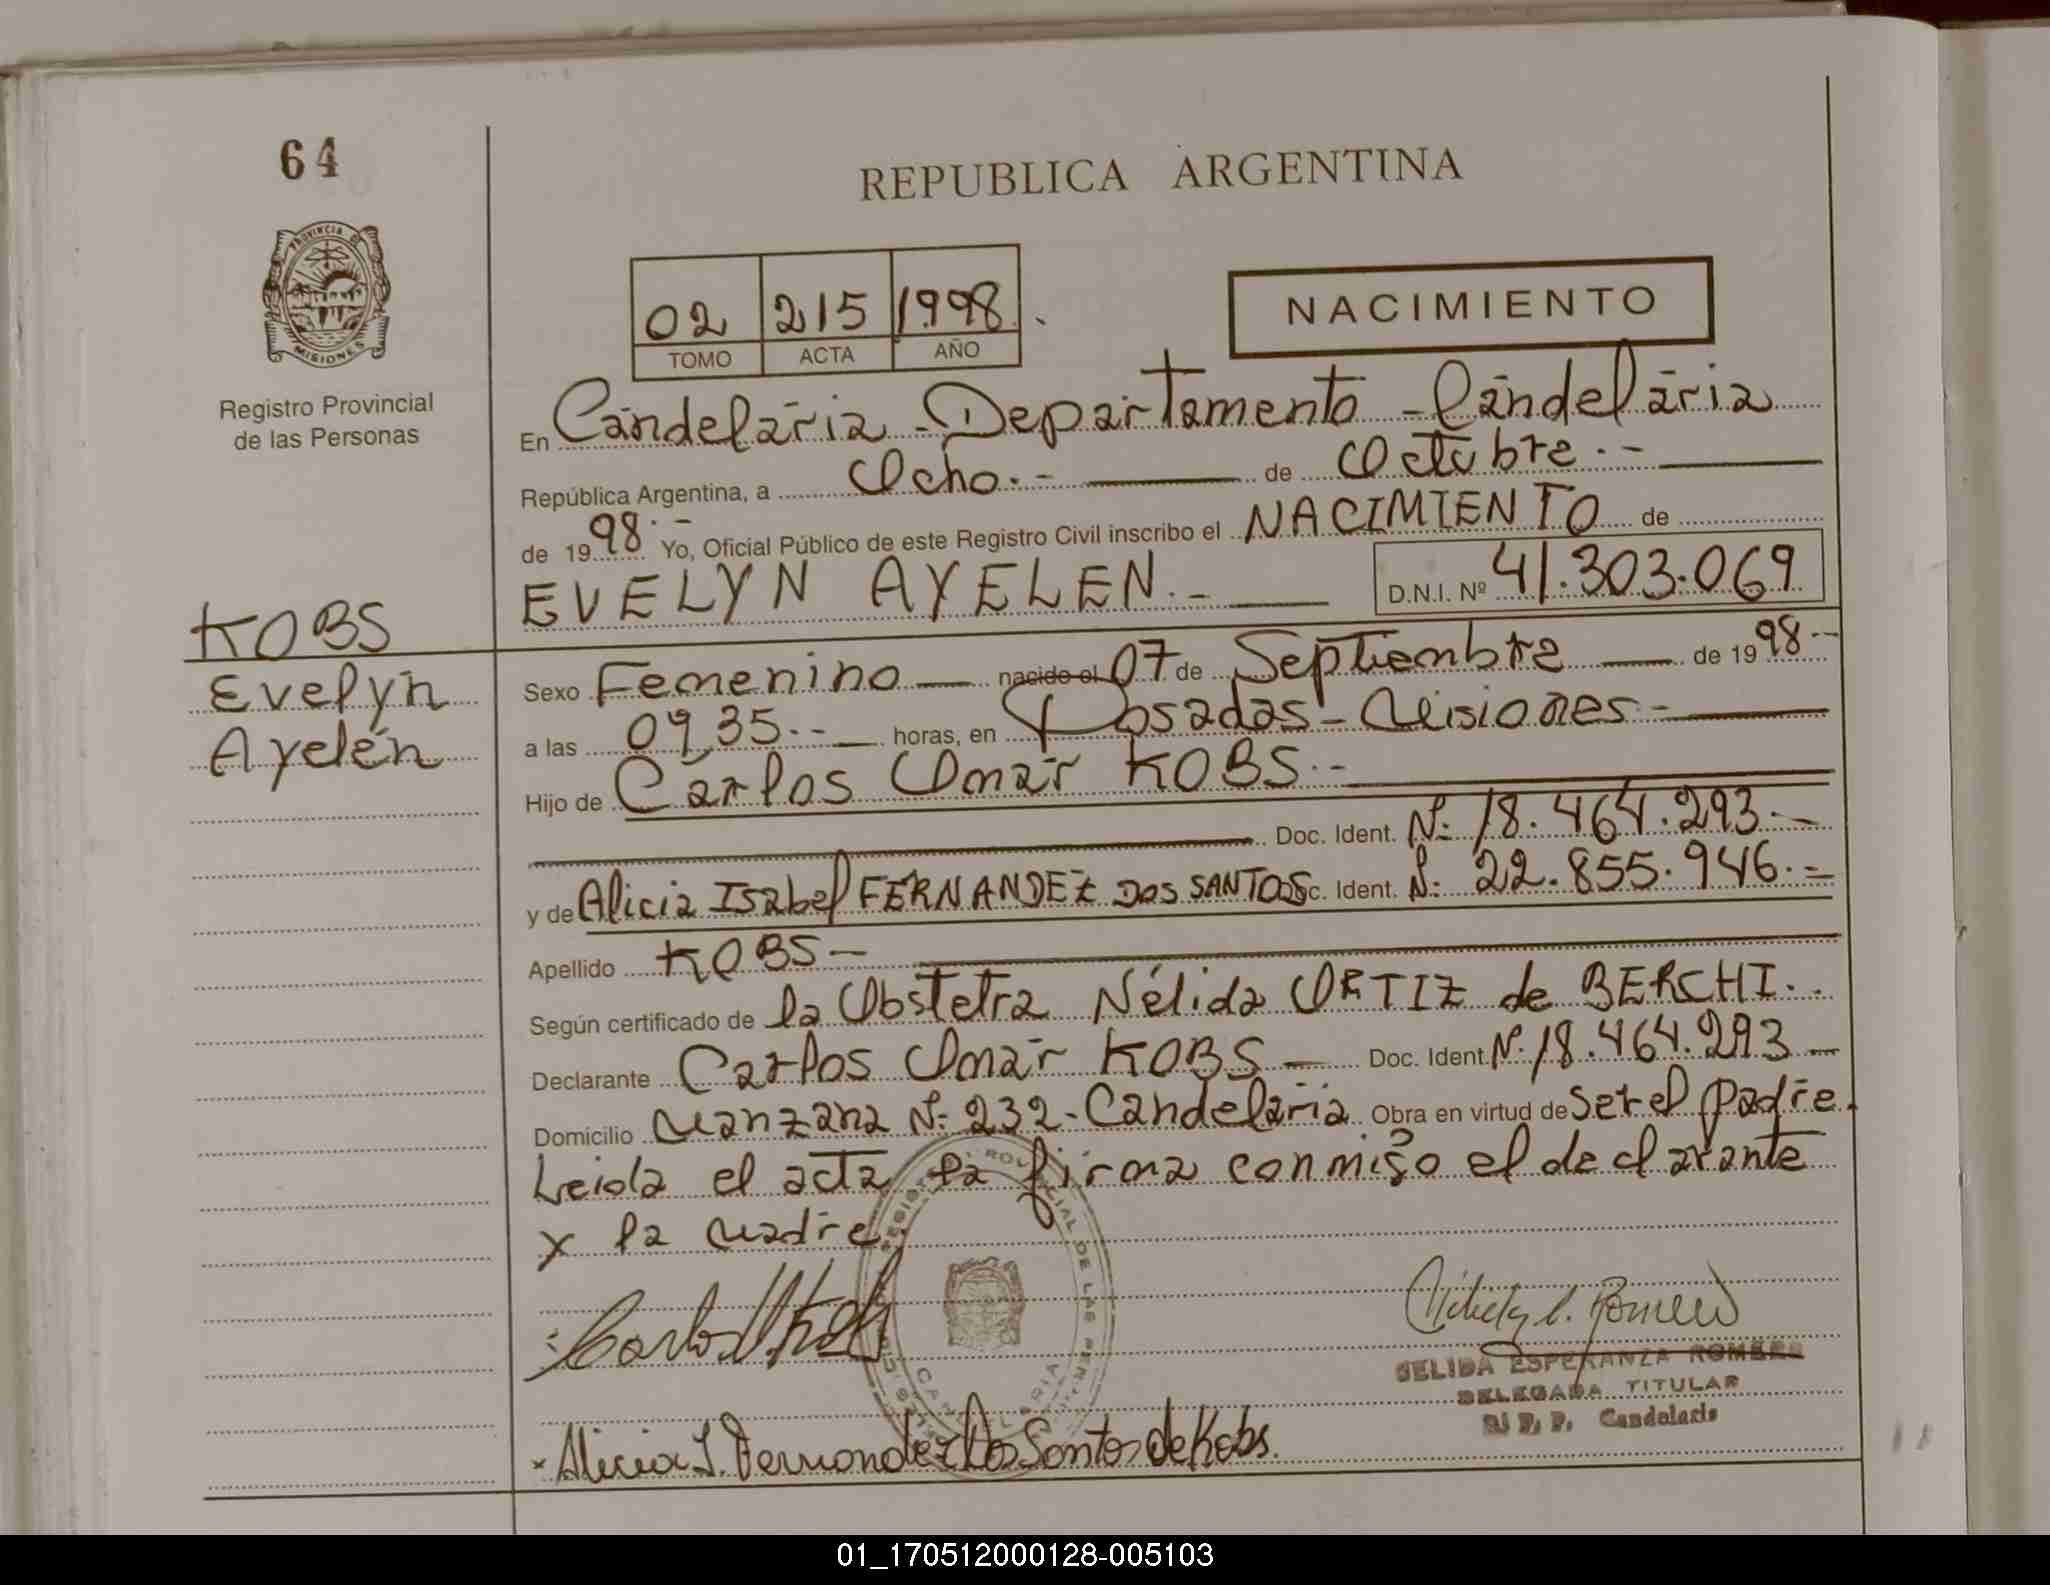 64
REPUBLICA ARGENTINA
PROVINCIA DE
MISIONES
Registro Provincial
de las Personas
02 215 1998.
TOMO ACTA AÑO
NACIMIENTO
En Candelaria - Departamento - Candelaria
República Argentina, a Ocho.- de Octubre.-
de 1998.- Yo, Oficial Público de este Registro Civil inscribo el NACIMIENTO de
EVELYN AYELEN.- D.N.I. Nº 41.303.069
KOBS
Evelyn
Ayelén
Sexo Femenino nacido el 07 de Septiembre de 1998.-
a las 09,35.- horas, en Posadas - Misiones.-
Hijo de Carlos Omar KOBS.-
Doc. Ident. Nº 18.464.293.-
y de Alicia Isabel FERNANDEZ DOS SANTOS Doc. Ident. Nº 22.855.946.-
Apellido KOBS -
Según certificado de la Obstetra Nélida ORTIZ de BERCHI.-
Declarante Carlos Omar KOBS - Doc. Ident. Nº 18.464.293 -
Domicilio Manzana Nº 232 - Candelaria Obra en virtud de ser el padre.
Leida el acta la firma conmigo el declarante
y la madre.
REGISTRO PROVINCIAL DE LAS PERSONAS
CANDELARIA
MISIONES
Nélida E. Romero
NELIDA ESPERANZA ROMERO
DELEGADA TITULAR
R. P. P. Candelaria
Alicia I. Fernandez Dos Santos de Kobs.
01_170512000128-005103